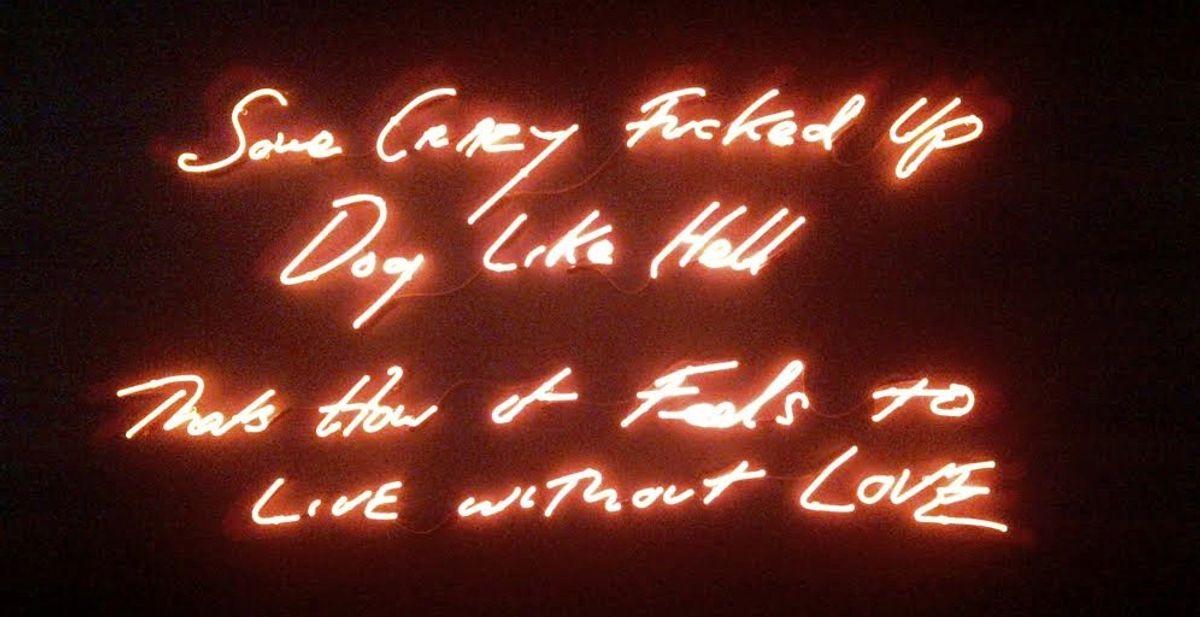 Some CRAZY Fucked Up
Dog Like Hell
Thats How it Feels to
LIVE WITHOUT LOVE